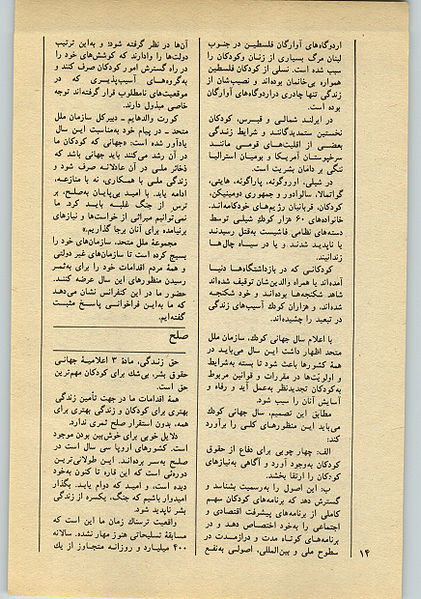 اردوگاه‌های آوارگان فلسطین در جنوب
لبنان مرگ بسیاری از زنان وکودکان را
سبب شده است. نسلی از کودکان فلسطین
همواره بی‌خانمان بوده‌اند و نصیب‌شان از
زندگی تنها چادری دراردوگاه‌های آوارگان
بوده است.
در ایرلند شمالی و قبرس، کودکان
نخستین ستمدیدگانند و شرایط زندگی
بعضی از اقلیت‌های قومی مانند
سرخپوستان آمریکا و بومیان استرالیا
ننگی بر دامان بشریت است.
در شیلی، اوروگوئه، پاراگوئه، هایتی،
گراتمالا، سالوادور و جمهوری دومینیکن،
کودکان، قربانیان رژیم‌های خودکامه‌اند.
خانواده‌های ۶۰ هزار کودک شیلی توسط
دسته‌های نظامی فاشیست به‌قتل رسیدند
یا ناپدید شدند و یا در سیاه چال‌ها
زندانیند.
کودکانی که در بازداشتگاه‌ها دنیا
آمده‌اند یا همراه والدین‌شان توقیف شده‌اند
شاهد شکنجه‌ها بوده‌اند و خود شکنجه
شده‌اند، و هزاران کودک آسیب‌های زندگی
در تبعید را چشیده‌اند.
با اعلام سال جهانی کودک، سازمان ملل
متحد اظهار داشت این سال می‌باید در
همهٔ کشورها باعث شود تا بسته به‌شرایط
و اولویّت‌ها در مقررات و قوانین مربوط
به‌کودکان تجدیدنظر به‌عمل آید و رفاه و
آسایش آنان را سبب شود.
مطابق این تصمیم، سال جهانی کودک
می‌باید این منظورهای کلی را برآورد
کند:
الف: چهار چوبی برای دفاع از حقوق
کودکان به‌وجود آورد و آگاهی به‌نیازهای
کودکان را ارتقا بخشد.
ب: این اصول را به‌رسمیت بشناسد و
گسترش دهد که برنامه‌های کودکان سهم
کاملی از برنامه‌های پیشرفت اقتصادی و
اجتماعی را به‌خود اختصاص دهد و در
برنامه‌های کوتاه مدت و درازمدت در
سطوح ملی و بین‌المللی، اصولی به‌نفع
۱۴
آن‌ها در نظر گرفته شود؛ و به‌این ترتیب
دولت‌ها را وادارند که کوشش‌های خود را
در راه گسترش امور کودکان صرف کنند و
به‌گروه‌های آسیب‌پذیری که در
موقعیت‌های نامطلوب قرار گرفته‌اند توجه
خاصی مبذول دارند.
کورت والدهایم – دبیرکل سازمان ملل
متحد – در پیام خود به‌مناسبت این سال
یادآور شده است: «جهانی که کودکان ما
در آن رشد می‌کنند باید جهانی باشد که
ذخائر ملی در آن عادلانه صرف شود و
زندگی ملی با همکاری، نه با منازعه،
ادامه یابد. با امید بی‌پایان به‌صلح، بر
ترس از جنگ غلبه باید کرد. ما
نمی‌توانیم میراثی از خواست‌ها و نیازهای
برنیامده برای آنان برجا گذاریم.»
مجموعهٔ ملل متحد، سازمان‌های خود را
بسیج کرده است تا سازمان‌های غیر دولتی
و همهٔ مردم اقدامات خود را برای به‌ثمر
رسیدن منظورهای این سال عرضه کنند.
حضور ما در این کنفرانس نشان می‌دهد
که ما به‌این فراخوانی پاسخ مثبت
گفته‌ایم.
صلح
حق زندگی، مادهٔ ۳ اعلامیهٔ جهانی
حقوق بشر، بی‌شک برای کودکان مهم‌ترین
حق است.
همهٔ اقدامات ما در جهت تأمین زندگی
بهتری برای کودکان و زندگی بهتری برای
همه، بدون استقرار صلح ثمری ندارد.
دلایل خوبی برای خوش‌بین بودن موجود
است. کشورهای اروپا سی سال است در
صلح به‌سر برده‌اند. این طولانی‌ترین
دوره‌ئی است که این قاره تا کنون به‌خود
دیده است، و امید که دوام یابد. بگذار
امیدوار باشیم که جنگ، یکسره از زندگی
بشر ناپدید شود.
واقعیت ترسناک زمان ما این است که
مسابقهٔ تسلیحاتی هنوز مهار نشده. سالانه
۴۰۰ میلیارد و روزانه متجاوز از یک